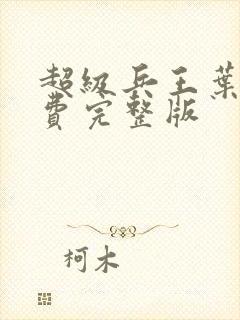 超級兵王葉
費完整版
柯木